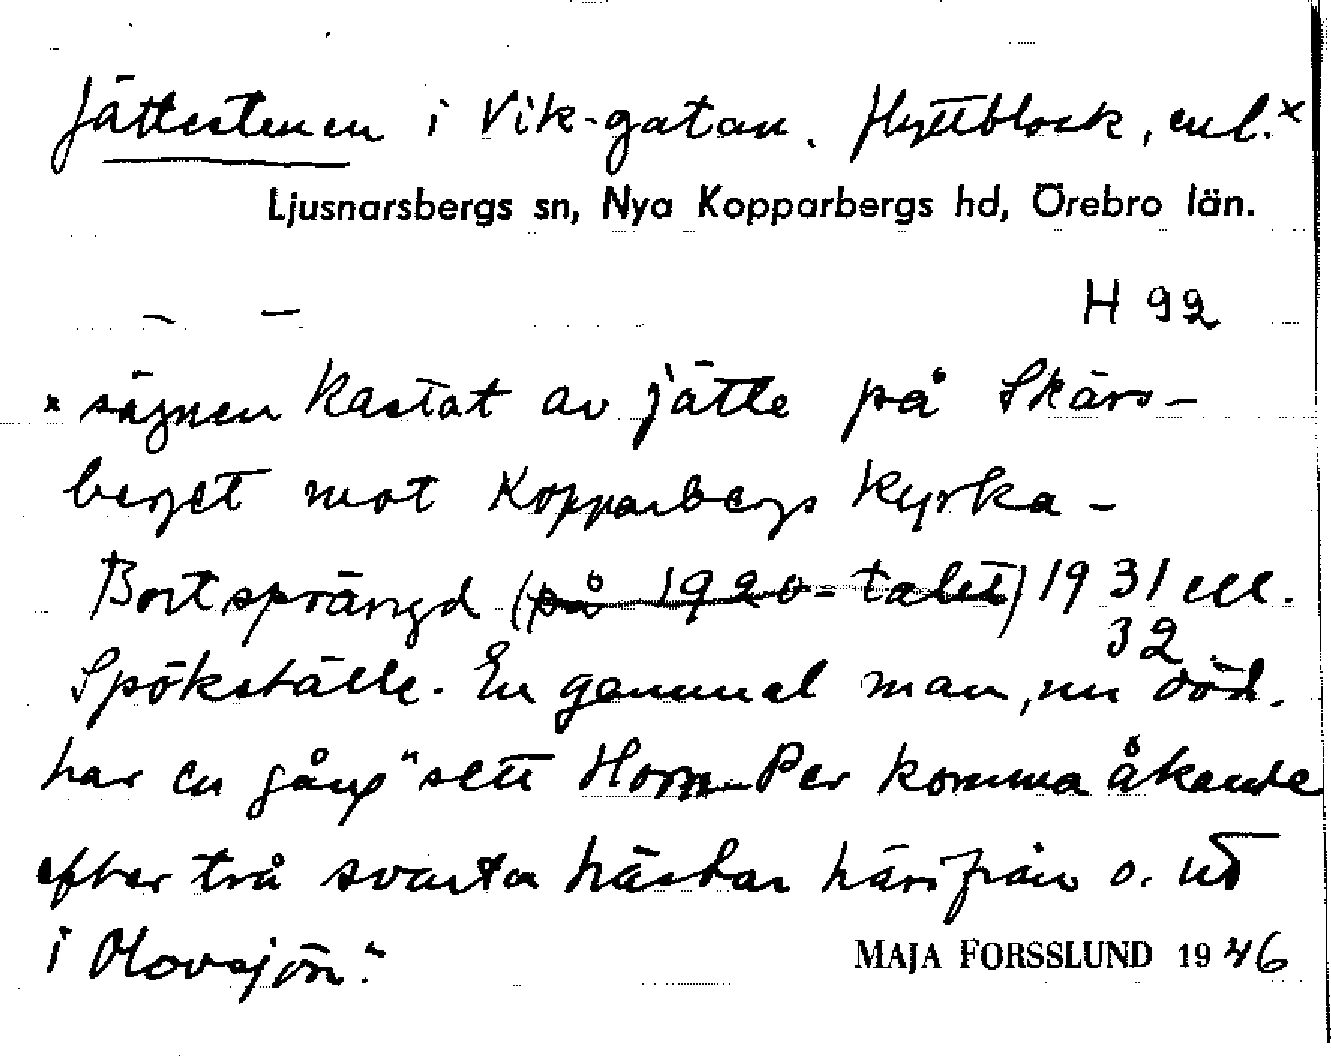 Jättestenen i Vik-gatan. Flyttblock, enl.x
Ljusnarsbergs sn, Nya Kopparbergs hd, Örebro län.
H 92
x sägnen kastat av jätte på Skärs-
berget mot Kopparbergs kyrka -
Bortsprängd (på 1920-talet) 1931 ell.
32.
Spökställe. En gammal man, nu död.
har en gång "sett Horn-Per komma åkande
efter två svarta hästar härifrån o. ut
i Olovsjön."
MAJA FORSSLUND 1946